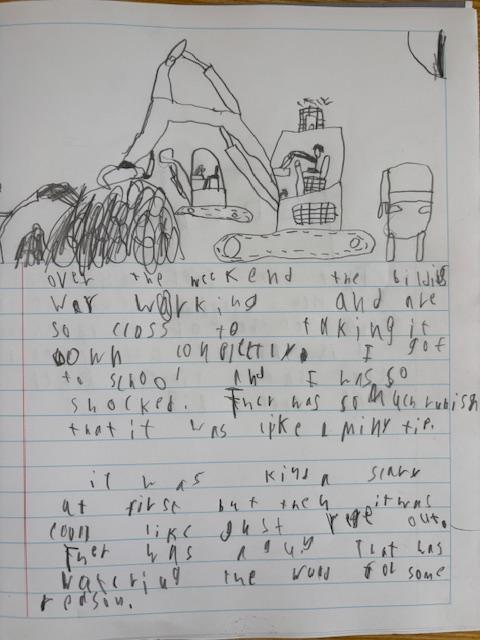 over the weekend the bildis
war working and are
so closs to taking it
down conpletly. I got
to school and I was so
shocked. Ther was so much rubish
that it was like a miny tip.
it was kind a scary
at first but then it was
cool like just out.
Ther was a guy that was
the wood for some
reason.